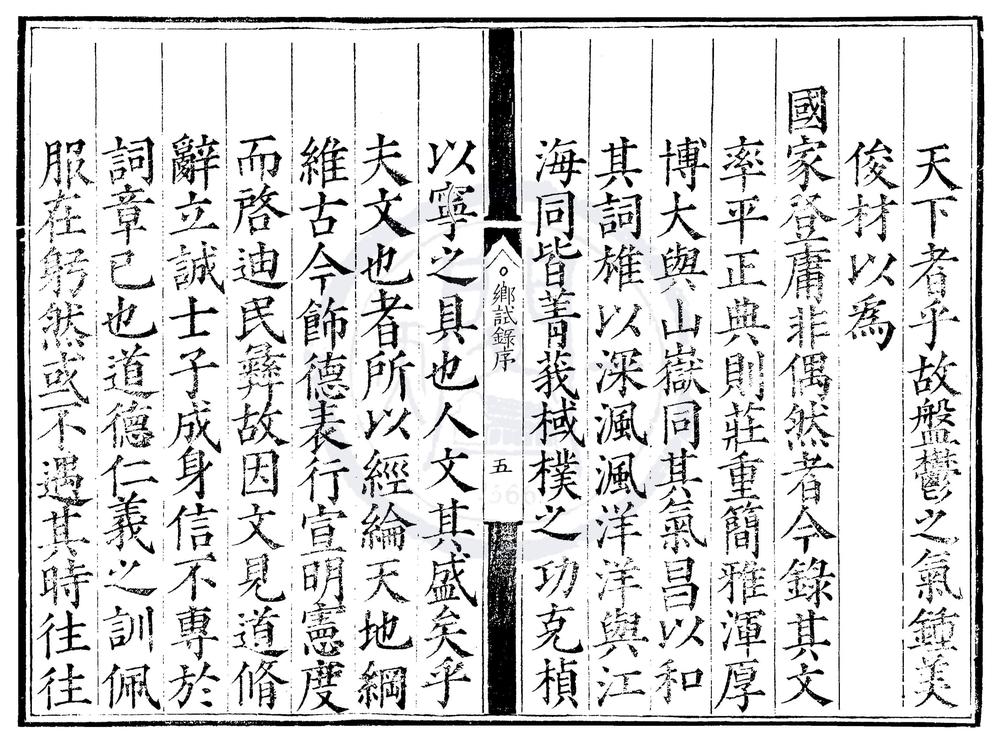 天下者乎故盤鬱之氣鍾美
俊材以為
國家登庸非偶然者今錄其文
率平正典則莊重簡雅渾厚
博大與山嶽同其氣昌以和
其詞雄以深渢渢洋洋與江
海同皆菁莪棫樸之功克楨
鄉試錄序
五
以寧之具也人文其盛矣乎
夫文也者所以經綸天地綱
維古今飾德表行宣明憲度
而啓迪民彝故因文見道脩
辭立誠士子成身信不專於
詞章已也道德仁義之訓佩
服在躬然或不遇其時往往